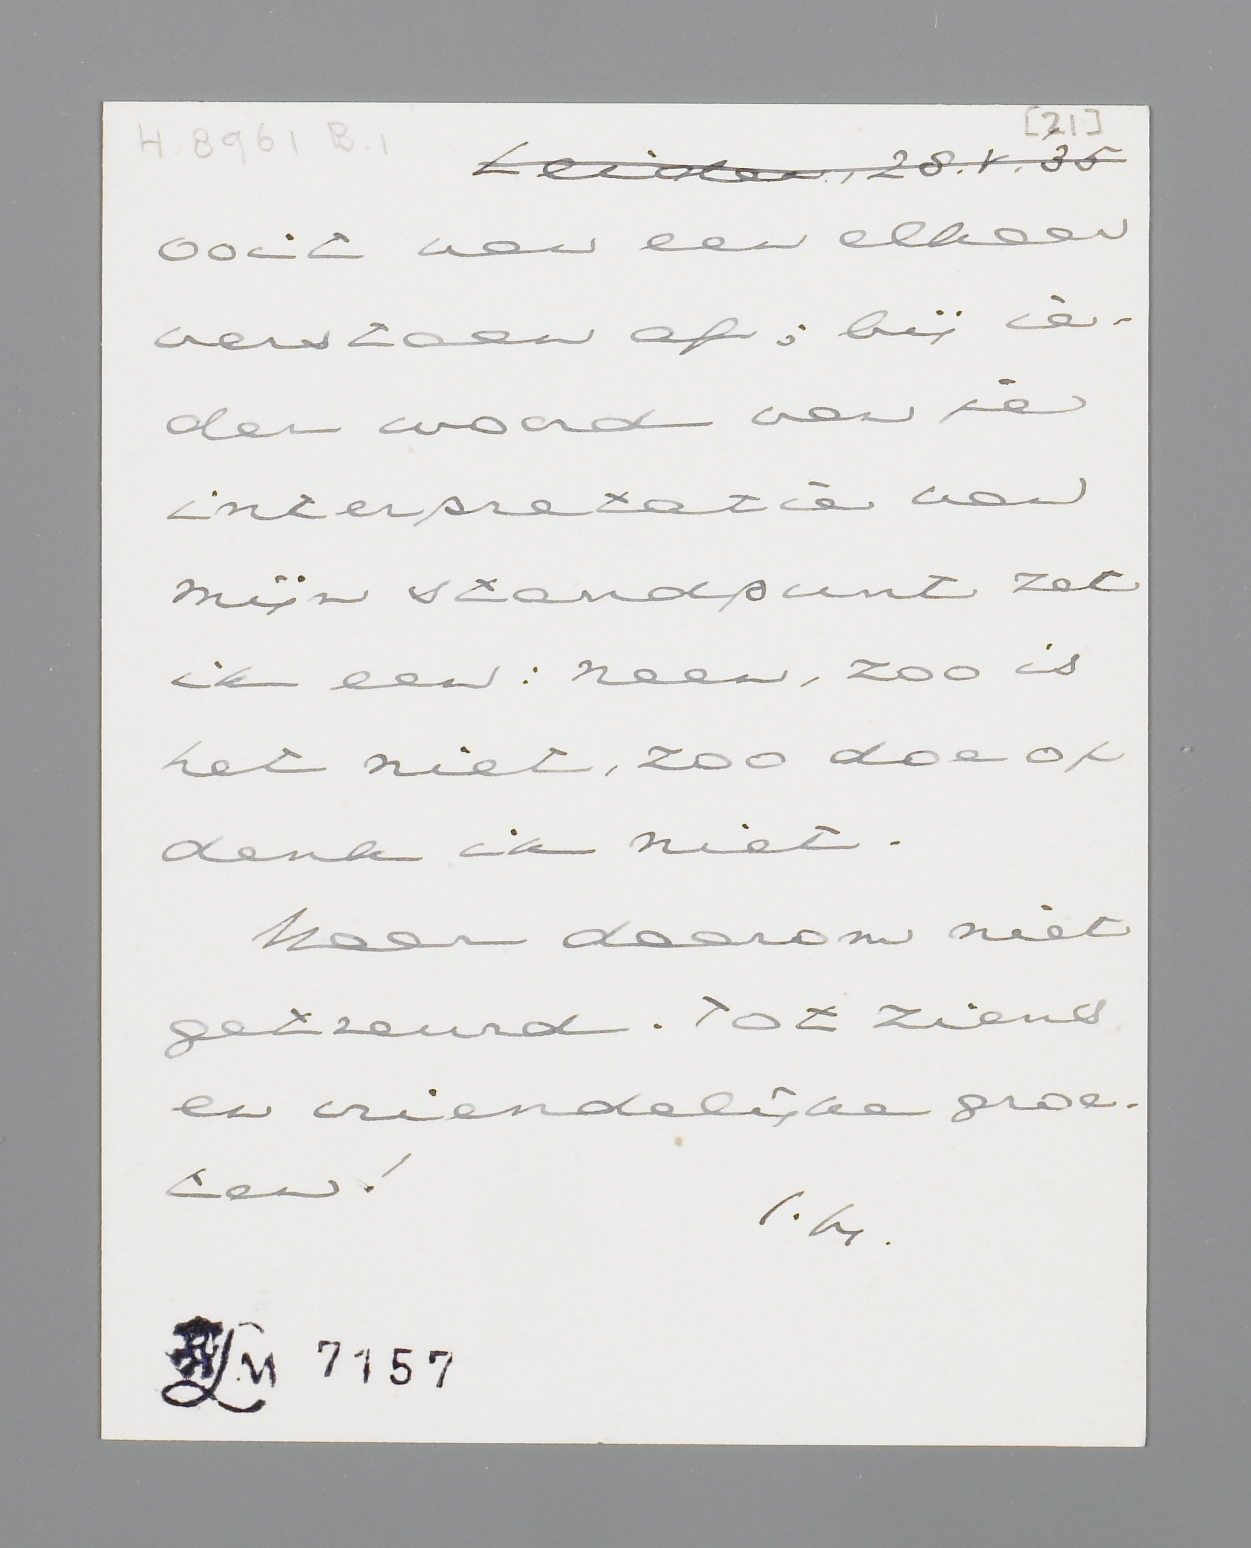 H.8961 B.1
[21]
Leiden, 28.V.35
ooit van een elkaar
verstaan af; bij ie-
der woord van je
interpretatie van
mijn standpunt zet
ik een: neen, zoo is
het niet, zoo doe of
denk ik niet.
Maar daarom niet
getreurd. Tot ziens
en vriendelijke groe-
ten!
LM 7157